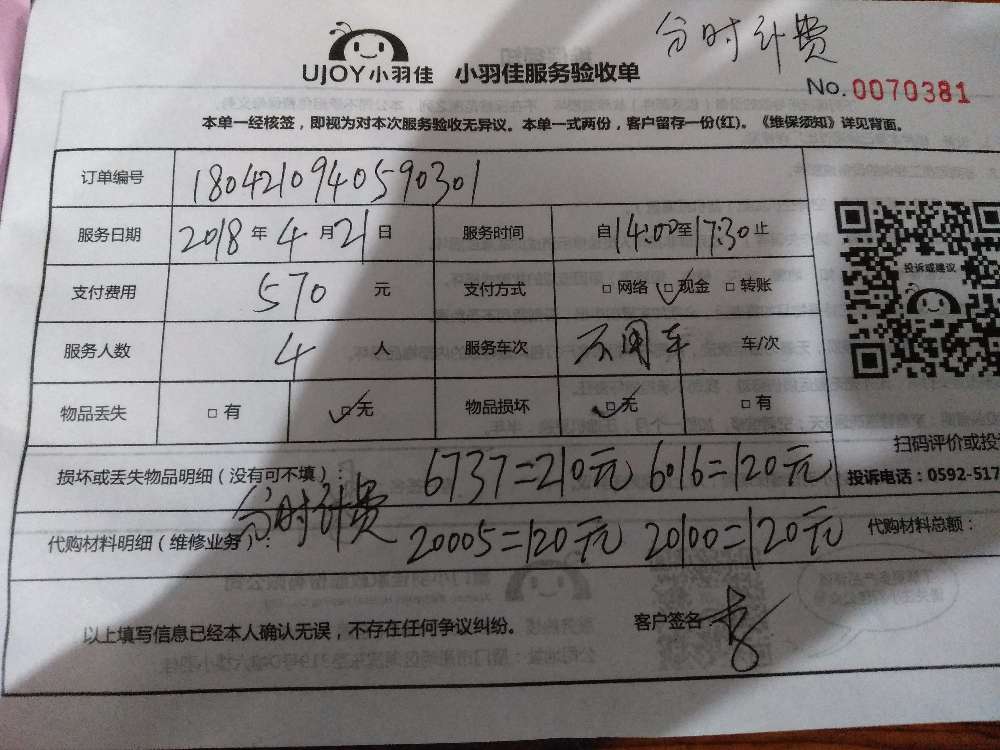 分时计费
UJOY小羽佳 小羽佳服务验收单
No.0070381
本单一经核签，即视为对本次服务验收无异议。本单一式两份，客户留存一份(红)。《维保须知》详见背面。
订单编号 1804210940590301
服务日期 2018年4月21日 服务时间 自14:00至17:30止
投诉或建议
支付费用 570 元 支付方式 □网络 □现金 □转账
服务人数 4 人 服务车次 不用车 车/次
物品丢失 □有 □无 物品损坏 □无 □有
扫码评价或投
损坏或丢失物品明细（没有可不填）： 6737=210元 6016=120元
投诉电话：0592-517
分时计费
代购材料明细（维修业务）： 20005=120元 20100=120元 代购材料总额：
以上填写信息已经本人确认无误，不存在任何争议纠纷。 客户签名